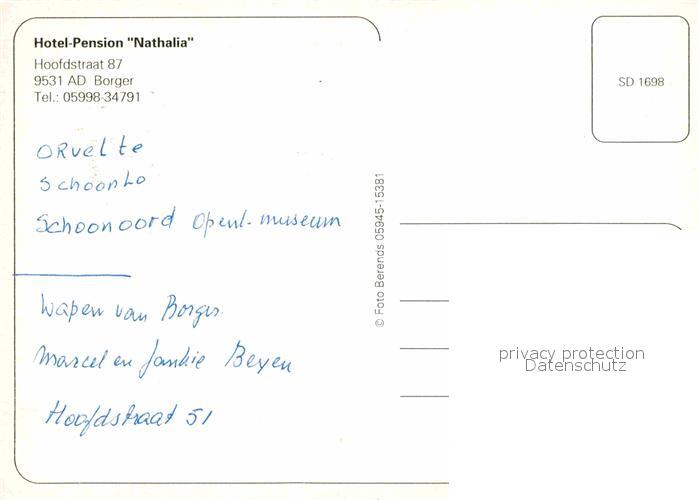 Hotel-Pension "Nathalia"
Hoofdstraat 87
9531 AD Borger
Tel.: 05998-34791
SD 1698
ORvelte
Schoonlo
Schoonoord Openl. museum
© Foto Berends 05945-15381
Wapen van Borger
Marcel en Jankie Beyen
Hoofdstraat 51
privacy protection
Datenschutz